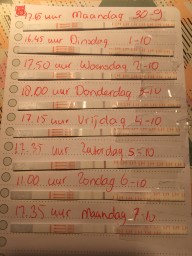 17.15 uur Maandag 30-9
16.45 uur Dinsdag 1-10
17.50 uur Woensdag 2-10
18.00 uur Donderdag 3-10
17.15 uur Vrijdag 4-10
17.35 uur Zaterdag 5-10
11.00 uur Zondag 6-10
17.35 uur Maandag 7-10